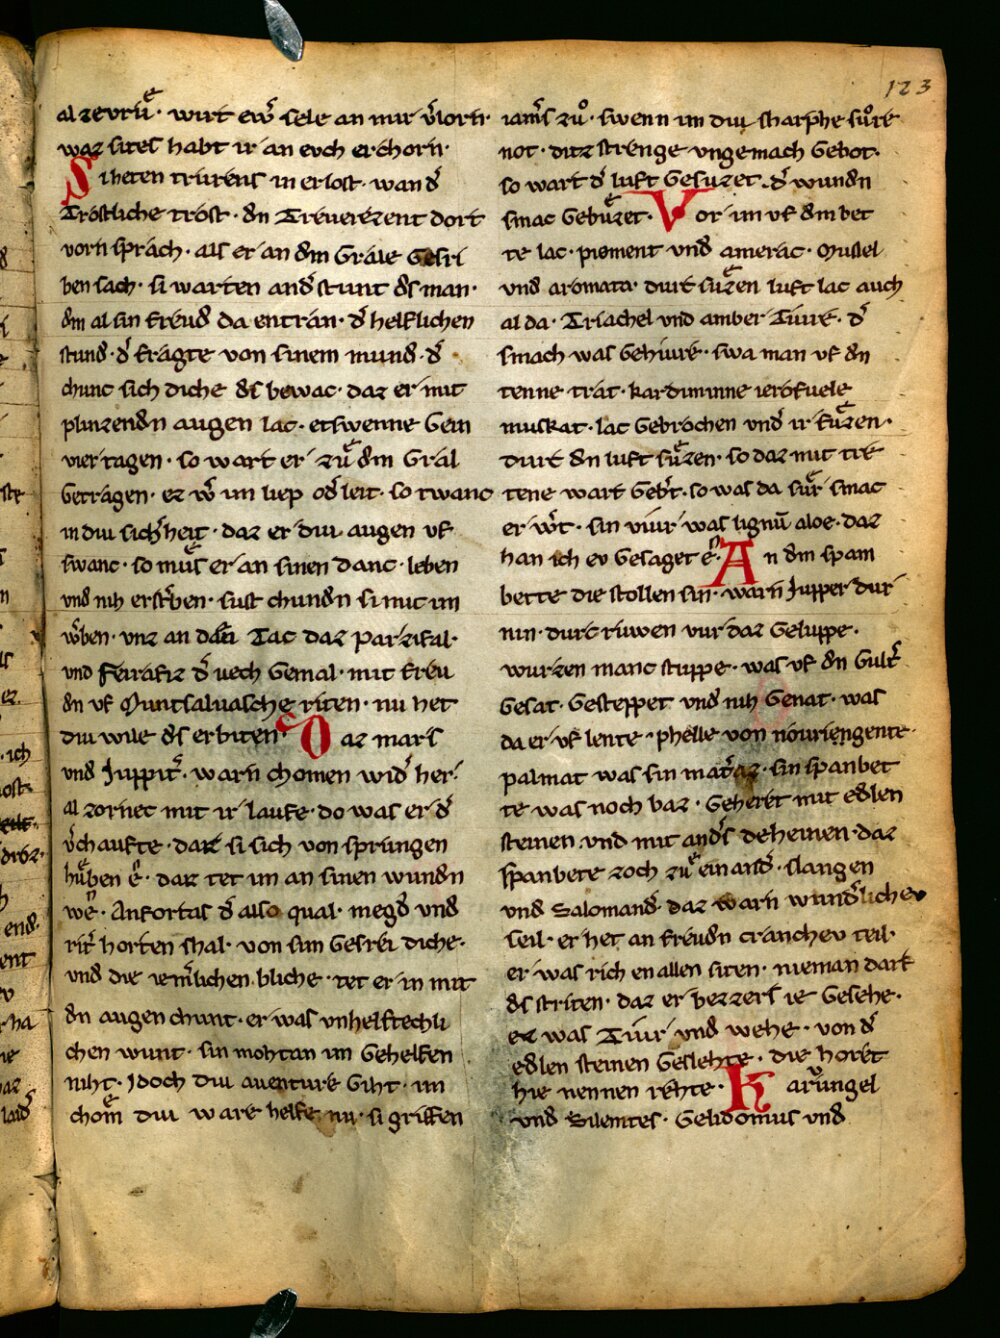 123
al zevruͤ · wirt ew̄ sele an mir v̄lorn·
waz sites habt ir an evch erchorn·
Si heten trurens in erlost · wand̄
Trostliche trost · dn Treverezent dort
vorn sprach · als er an dm Grale Gesri
ben sach · si warten and̄stunt ds man·
dm al sin freud da entran · d̄ helflichen
stund · d̄ fragte von sinem mund · d̄
chunc sich diche ds bewac · daz er mit
plinzendn augen lac · etswenne Gein
vier tagen · so wart er zuͤ dm Gral
Getragen · ez w̄ im liep od̄ leit · so twanc
in div sich̄heit · daz er div augen vf
swanc · so muͤs er an sinen danc · leben
vnd niht erst̄ben · sust chundn si mit im
w̄ben · vnz an den Tac daz Parzifal·
vnd Feirafiz d̄ vech Gemal · mit freu
dn vf Muntsalvasche riten · nu het
div wile ds erbiten· Daz mars
vnd Juppit̄ · warn chomen wid̄ her·
al zornec mit ir laufe · do was er d̄
v̄chaufte · dar si sich von sprungen
huͤben e · daz tet im an sinen wundn
we · Anfortas d̄ also qual · megd̄ vnd
rit̄ horten shal · von sim Gesrei diche·
vnd die iem̄lichen bliche · tet er in mit
dn augen chunt · er was vnhelftechli
chen wunt · sin mohtan im Gehelfen
niht · Jdoch div aventure Giht · im
chom div ware helfe nu · si griffen
iam̄s zuͦ · swenn im div sharphe suͦre
not · ditz strenge vngemach Gebot·
so wart d̄ luft Gesuzet · d̄ wundn
smac Gebuͤzet · Vor im vf dm bet
te lac · piement und amerac · Musiel
vnd aromata · durc suͤzen luft lac auch
al da · Triachel vnd amber Tiure · d̄
smach was Gehiure · swa man vf dn
tenne trat · kardimimne ierofuele
muskat · lac Gebrochen vnd ir fuͤzen·
durc dn luft suͤzen · so daz mit tre
tene wart Geb̄t · so was da suͤr smac
er w̄t · sin viur was lignū aloe · daz
han ich ev Gesaget e · An dm spam
bette die stollen sin · warn Jupper dur
nin · durc riuwen vur daz Geluppe·
wurzen manc stuppe · was vf dn Gult̄
Gesat · Gesteppet vnd niht Genat · was
da er vf lente · phelle von nouriengente·
palmat was sin mat̄az · sin spanbet
te was noch baz · Geheret mit edlen
steinen · vnd mit and̄s deheinen · daz
spanbete zoch zuͤ einand̄ · slangen
vnd salomand̄ · daz warn wund̄lichev
seil · er het an freudn cranchev teil·
er was rich en allen siten · nieman darf
ds striten · daz er bezzers ie Gesehe·
ez was Tiur vnd wehe · von d̄
edlen steinen Geslehte · die horet
hie nennen rehte · Karuͦngel
vnd silenites · Gelidomius vnd